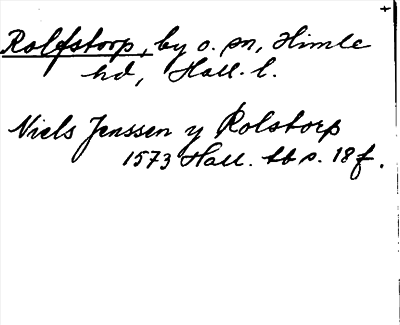 Rolfstorp, by o. sn, Himle
hd, Hall. l.
Niels Jenssen y Rolstorp
1573 Hall. tb s. 18f.